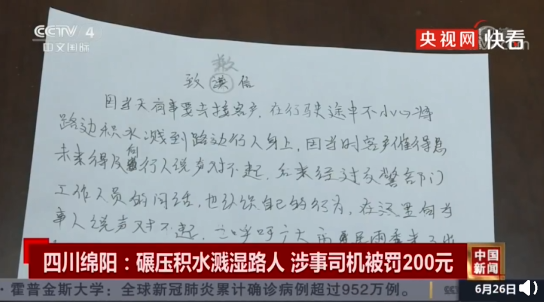 CCTV 4
中文国际
央视网 快看
致 歉 信
因当天有事要去接客户，在行驶途中不小心将
路边积水溅到路边行人身上，因当时客户催得急
未来得及向行人说声对不起，后来经过交警部门
工作人员的
自己的行为，在这里向当
事人说声对不起，
四川绵阳：碾压积水溅湿路人 涉事司机被罚200元
中国新闻
·霍普金斯大学：全球新冠肺炎累计确诊病例超过952万例。
6月26日